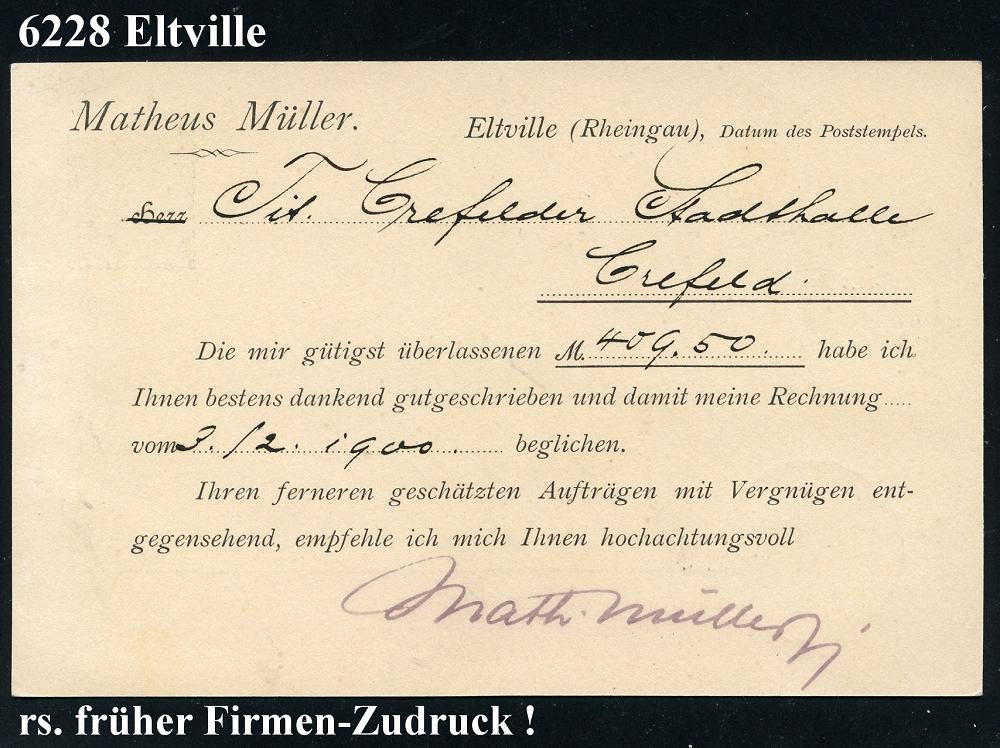 6228 Eltville
Matheus Müller.
Eltville (Rheingau), Datum des Poststempels.
Herr Tit. Crefelder Stadthalle
Crefeld.
Die mir gütigst überlassenen M. 409.50. habe ich
Ihnen bestens dankend gutgeschrieben und damit meine Rechnung
vom 3./2. 1900 beglichen.
Ihren ferneren geschätzten Aufträgen mit Vergnügen ent-
gegensehend, empfehle ich mich Ihnen hochachtungsvoll
Math. Müller
rs. früher Firmen-Zudruck !